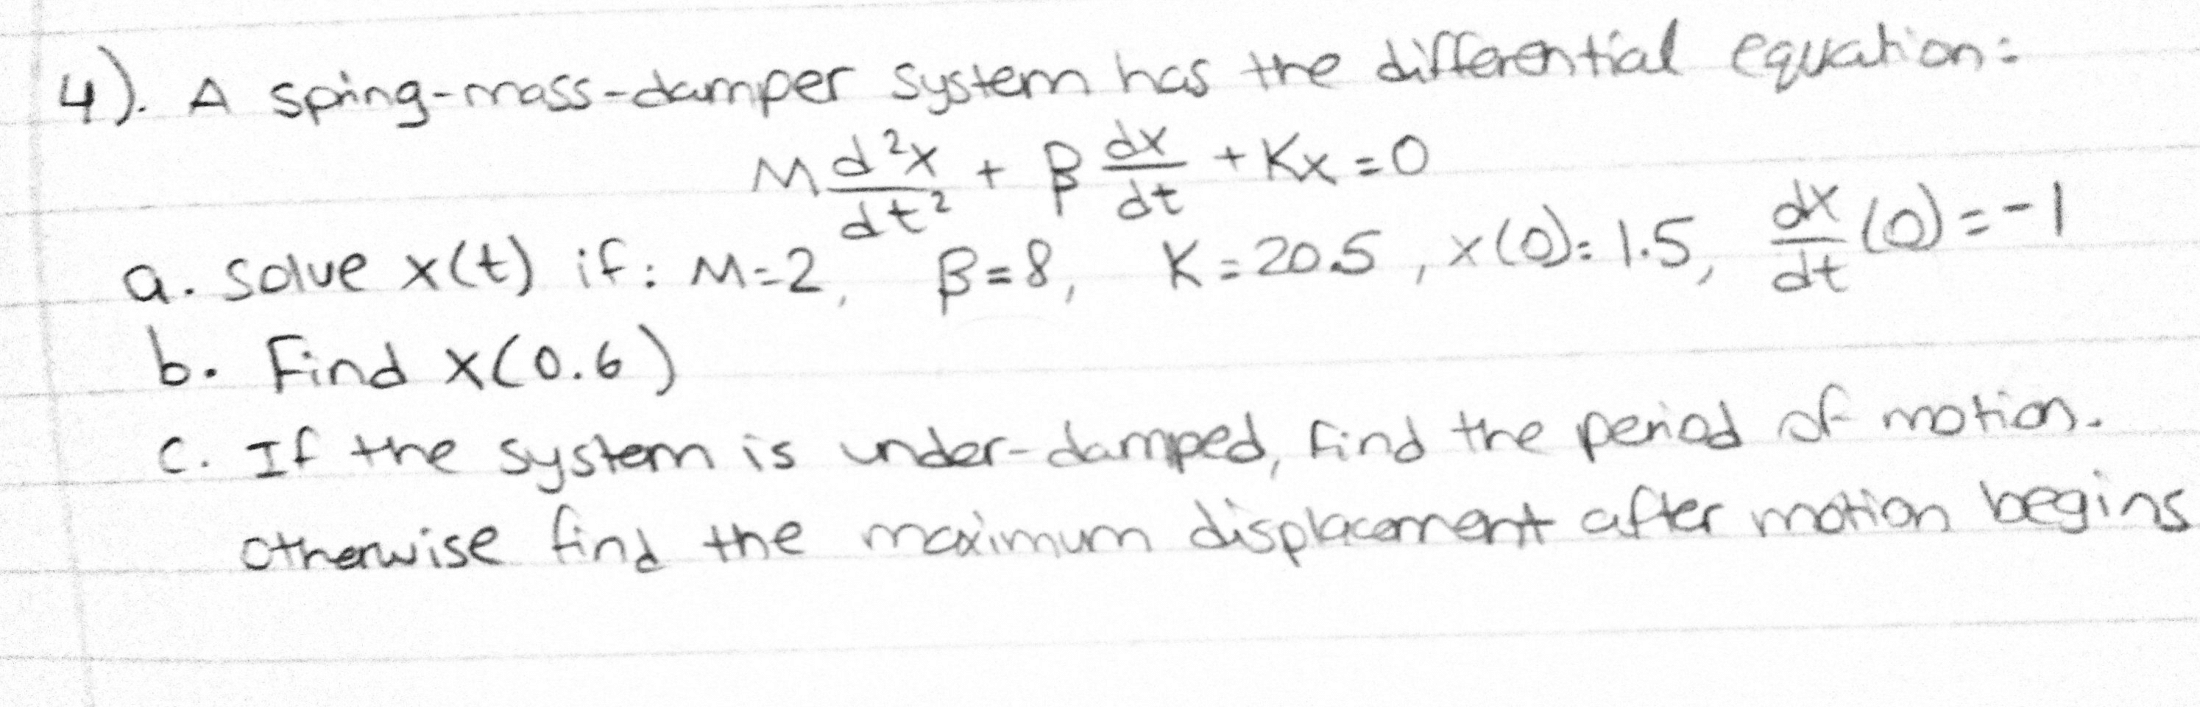 4). A spring-mass-damper system has the differential equation:
M d²x/dt² + β dx/dt + Kx = 0
a. solve x(t) if: M=2, β=8, K=20.5, x(0)=1.5, dx/dt (0)=-1
b. Find x(0.6)
c. If the system is under-damped, find the period of motion.
otherwise find the maximum displacement after motion begins